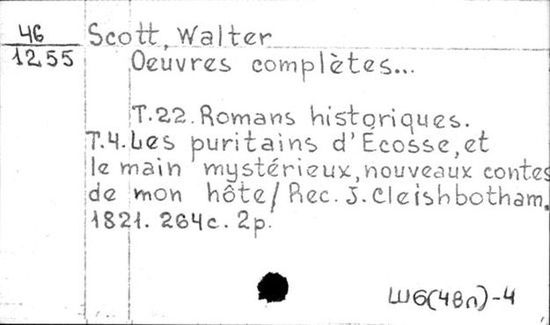 46
1255
Scott, Walter
Oeuvres complètes...
T.22. Romans historiques.
T.4. Les puritains d'Ecosse, et
le main mystérieux, nouveaux contes
de mon hôte/ Rec. J. Cleishbotham.
1821. 264c. 2p.
Ш6(48л)-4